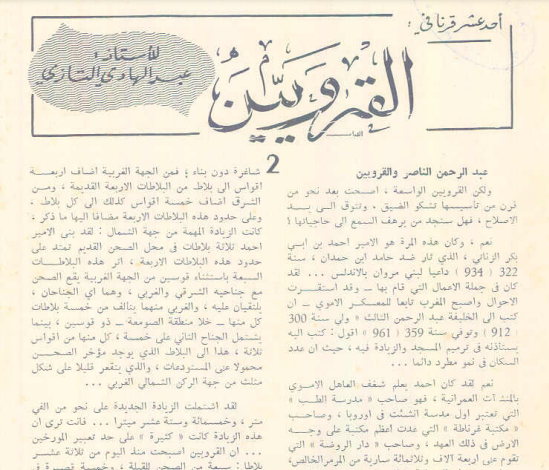 أحد عشر قرنا في :
القرويين
للأستاذ :
عبد الهادي التازي
2
عبد الرحمن الناصر والقرويين
ولكن القرويين الواسعة ، اصبحت بعد نحو من
قرن من تأسيسها تشكو الضيق . وتتوق الى يد
الاصلاح ، فهل ستجد من يرهف السمع الى حاجياتها ؟
نعم ، وكان هذه المرة هو الامير احمد بن ابي
بكر الزناتي ، الذي ثار ضد حامد ابن حمدان ، سنة
322 ( 934 ) داعيا لبني مروان بالاندلس ... لقد
كان في جملة الاعمال التي قام بها ـ وقد استقرت
الاحوال واصبح المغرب تابعا للمعسكر الاموي ـ ان
كتب الى الخليفة عبد الرحمن الثالث « ولى سنة 300
( 912 ) وتوفي سنة 359 ( 961 » اقول : كتب اليه
يستأذنه في ترميم المسجد والزيادة فيه ، حيث ان عدد
السكان في نمو مطرد دائما ...
نعم لقد كان احمد يعلم شغف العاهل الاموي
بالمنشآت العمرانية ، فهو صاحب « مدرسة الطب »
التي تعتبر اول مدرسة انشئت في اوروبا ، وصاحب
« مكتبة غرناطة » التي عدت اعظم مكتبة على وجه
الارض في ذلك العهد ، وصاحب « دار الروضة » التي
تقوم على اربعة آلاف وثلاثمائة سارية من المرمر الخالص،
شاغرة دون بناء ؛ فمن الجهة الغربية اضاف اربعة
اقواس الى بلاط من البلاطات الاربعة القديمة ، ومن
الشرق اضاف خمسة اقواس كذلك الى كل بلاط ،
وعلى حدود هذه البلاطات الاربعة مضافا اليها ما ذكر ،
كانت الزيادة المهمة من جهة الشمال : لقد بنى الامير
احمد ثلاثة بلاطات في محل الصحن القديم تمتد على
حدود هذه البلاطات الاربعة ، اثر هذه البلاطات
السبعة باستثناء قوسين من الجهة الغربية يقع الصحن
مع جناحيه الشرقي والغربي ، وهما اي الجناحان ،
يلتقيان عليه ، والغربي منهما يتألف من خمسة بلاطات
كل منها ـ خلا منطقة الصومعة ـ ذو قوسين ، بينما
يشتمل الجناح الثاني على خمسة ، كل منها من اقواس
ثلاثة ، هذا الى البلاط الذي يوجد مؤخر الصحن
محمولا على المستودعات ، والذي يتقعر قليلا على شكل
مثلث من جهة الركن الشمالي الغربي ...
لقد اشتملت الزيادة الجديدة على نحو من الفي
متر ، وخمسمائة وستة عشر ميترا ... فانت ترى ان
هذه الزيادة كانت « كثيرة » على حد تعبير المورخين
... ان القرويين اصبحت منذ اليوم من ثلاثة عشر
بلاطا : سبعة من الصحن للقبلة ، وخمسة قصيرة في